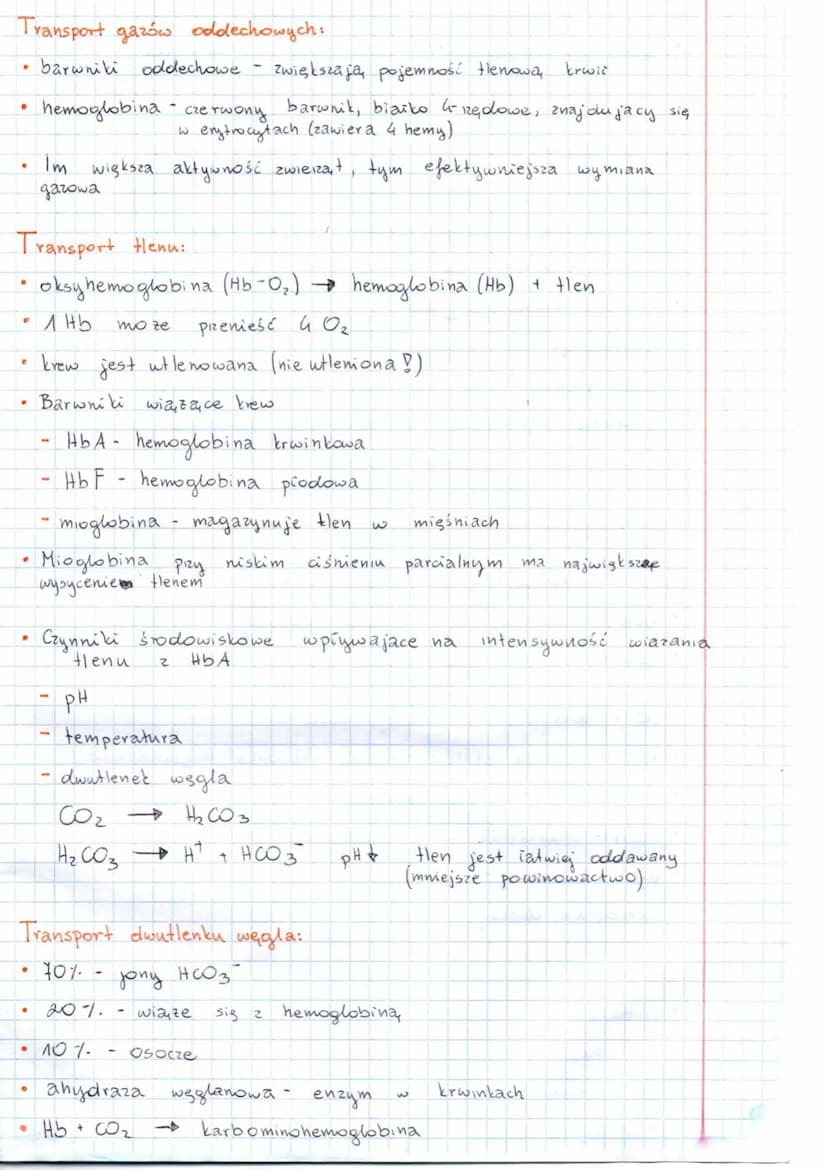 Transport gazów oddechowych:
• barwniki oddechowe - zwiększają pojemność tlenową krwi
• hemoglobina - czerwony barwnik, białko 4-rzędowe, znajdujący się
w erytrocytach (zawiera 4 hemy)
• Im większa aktywność zwierząt, tym efektywniejsza wymiana
gazowa
Transport tlenu:
• oksyhemoglobina (Hb-O₂) → hemoglobina (Hb) + tlen
• 1 Hb może przenieść 4 O₂
• krew jest utlenowana (nie utleniona!)
• Barwniki wiążące krew
- HbA - hemoglobina krwinkowa
- HbF - hemoglobina płodowa
- mioglobina - magazynuje tlen w mięśniach
• Mioglobina przy niskim ciśnieniu parcialnym ma największe
wysycenie tlenem
• Czynniki środowiskowe wpływające na intensywność wiązania
tlenu z HbA
- pH
- temperatura
- dwutlenek węgla
CO₂ → H₂CO₃
H₂CO₃ → H⁺ + HCO₃⁻ pH↓ tlen jest łatwiej oddawany
(mniejsze powinowactwo)
Transport dwutlenku węgla:
• 70% - jony HCO₃⁻
• 20% - wiąże się z hemoglobiną
• 10% - osocze
• ahydraza węglanowa - enzym w krwinkach
• Hb + CO₂ → karbominohemoglobina